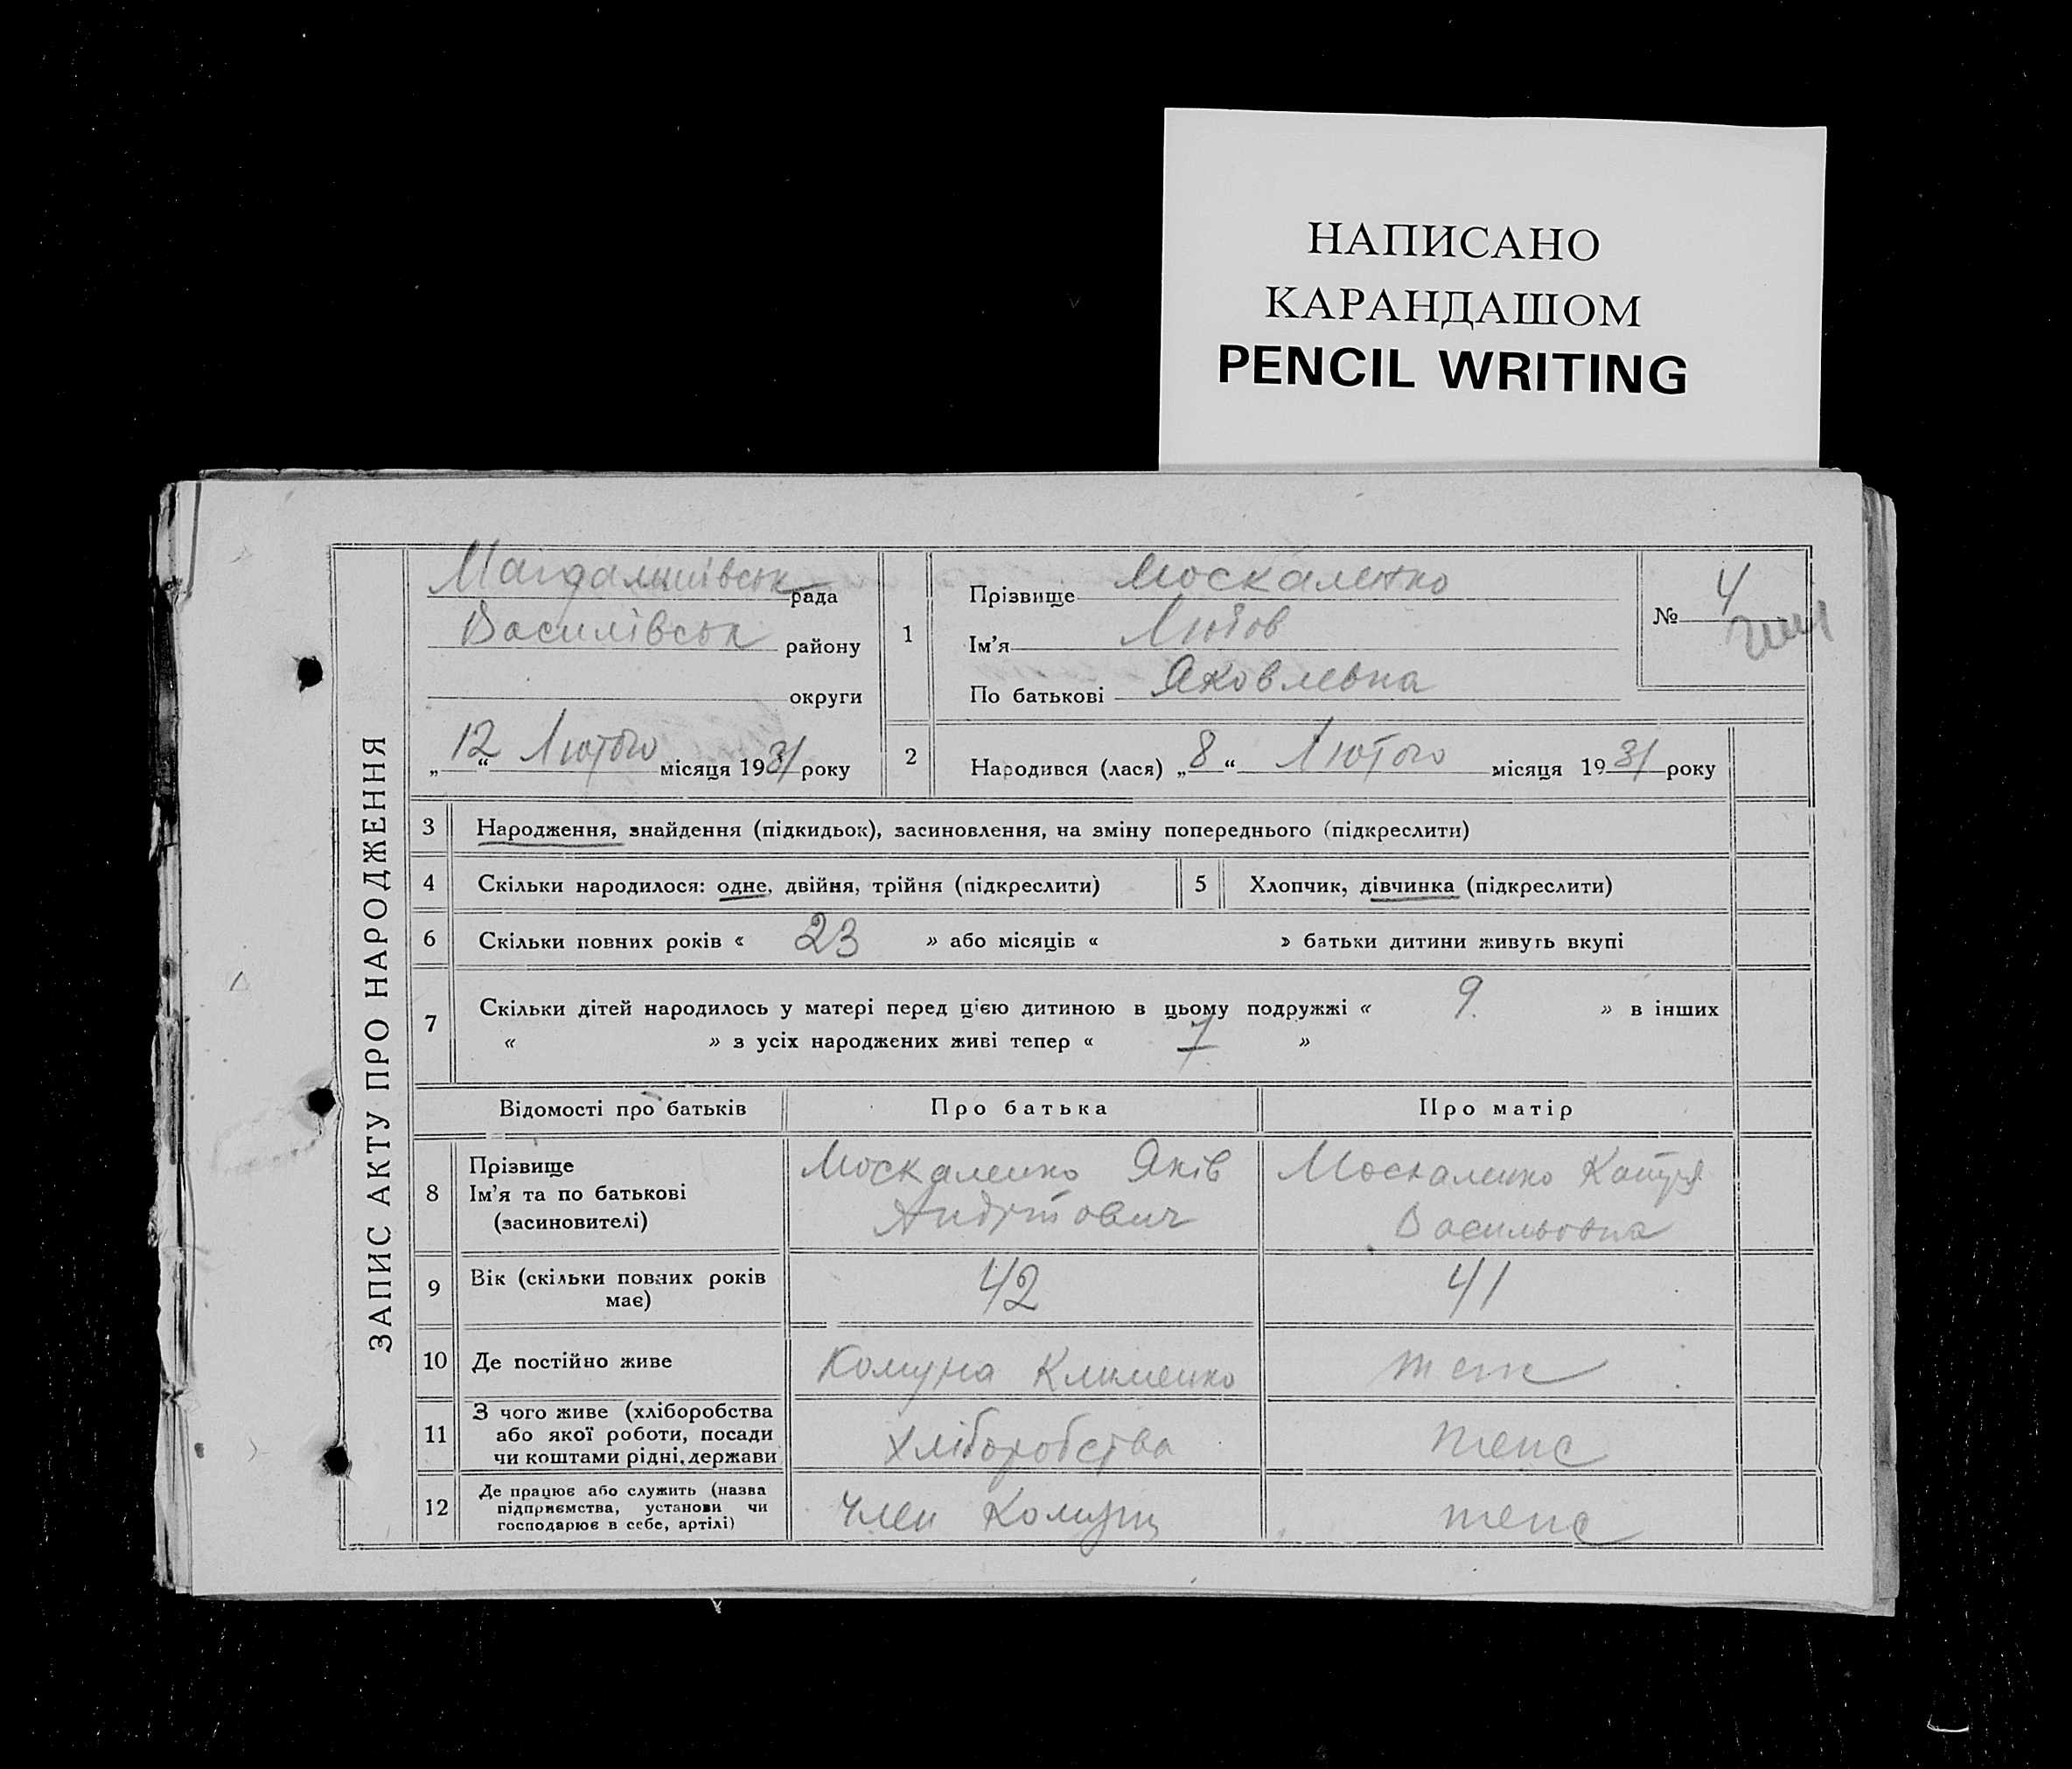 НАПИСАНО
КАРАНДАШОМ
PENCIL WRITING
ЗАПИС АКТУ ПРО НАРОДЖЕННЯ
Магдалинівськ рада
Василівськ району
округи
„12“ Лютого місяця 1931 року
1
Прізвище Москаленко
Ім’я Любов
По батькові Яковлевна
№ 4
2 Народився (лася) „8“ Лютого місяця 1931 року
3 Народження, знайдення (підкидьок), засиновлення, на зміну попереднього (підкреслити)
4 Скільки народилося: одне, двійня, трійня (підкреслити) 5 Хлопчик, дівчинка (підкреслити)
6 Скільки повних років « 23 » або місяців « » батьки дитини живуть вкупі
7 Скільки дітей народилось у матері перед цією дитиною в цьому подружжі « 9. » в інших
« » з усіх народжених живі тепер « 7 »
Відомості про батьків Про батька Про матір
8 Прізвище
Ім’я та по батькові
(засиновителі)
Москаленко Яків
Москаленко
Васильовна
9 Вік (скільки повних років
має)
42 41
10 Де постійно живе Комуна Клименко теж
11 З чого живе (хліборобства
або якої роботи, посади
чи коштами рідні, держави
Хліборобства теж
12 Де працює або служить (назва
підприємства, установи чи
господарює в себе, артілі)
Член Комуни теж